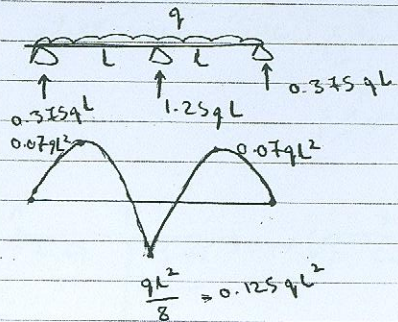 q
L L
0.375qL 1.25qL 0.375qL
0.07qL² 0.07qL²
qL²/8 = 0.125qL²